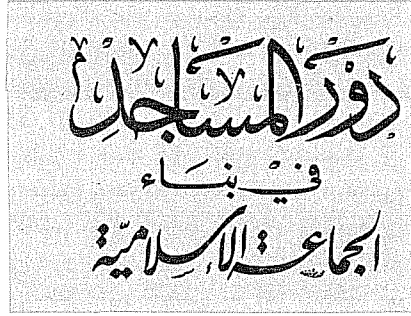 دَوْرُ المَسَاجِدِ
فِي بِنَاء
الجَمَاعَةِ الإِسْلَامِيَّةِ